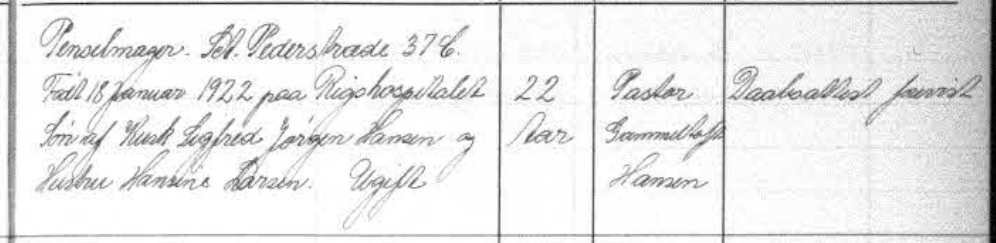 Penselmager. Sct. Pederstræde 37 C.
Født 18 Januar 1922 paa Rigshospitalet
Søn af Kusk Sigfred Jørgen Hansen og
Hustru Hansine Larsen. Ugift
22
Aar
Pastor
Gammeltoft
Hansen
Daabsattest forevist